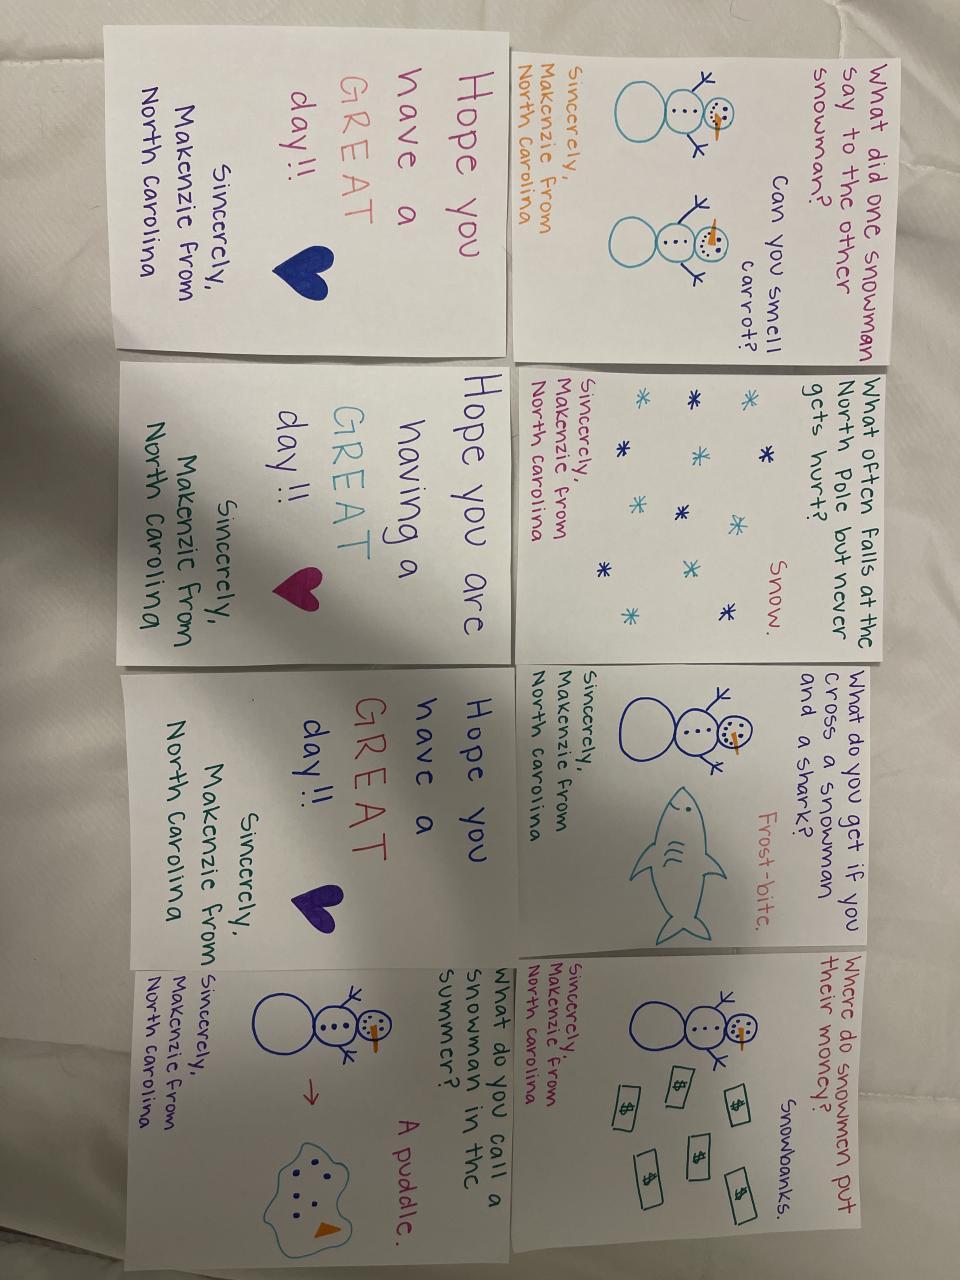 What did one snowman
say to the other
snowman?
Can you smell
carrot?
Sincerely,
Makenzie from
North Carolina
What often falls at the
North Pole but never
gets hurt?
Snow.
Sincerely,
Makenzie from
North Carolina
What do you get if you
cross a snowman
and a shark?
Frost-bite.
Sincerely,
Makenzie from
North Carolina
Where do snowmen put
their money?
Snowbanks.
$
$
$
$
$
$
Sincerely,
Makenzie from
North Carolina
Hope you
have a
GREAT
day!!
Sincerely,
Makenzie from
North Carolina
Hope you are
having a
GREAT
day!!
Sincerely,
Makenzie from
North Carolina
Hope you
have a
GREAT
day!!
Sincerely,
Makenzie from
North Carolina
What do you call a
snowman in the
summer?
A puddle.
Sincerely,
Makenzie from
North Carolina